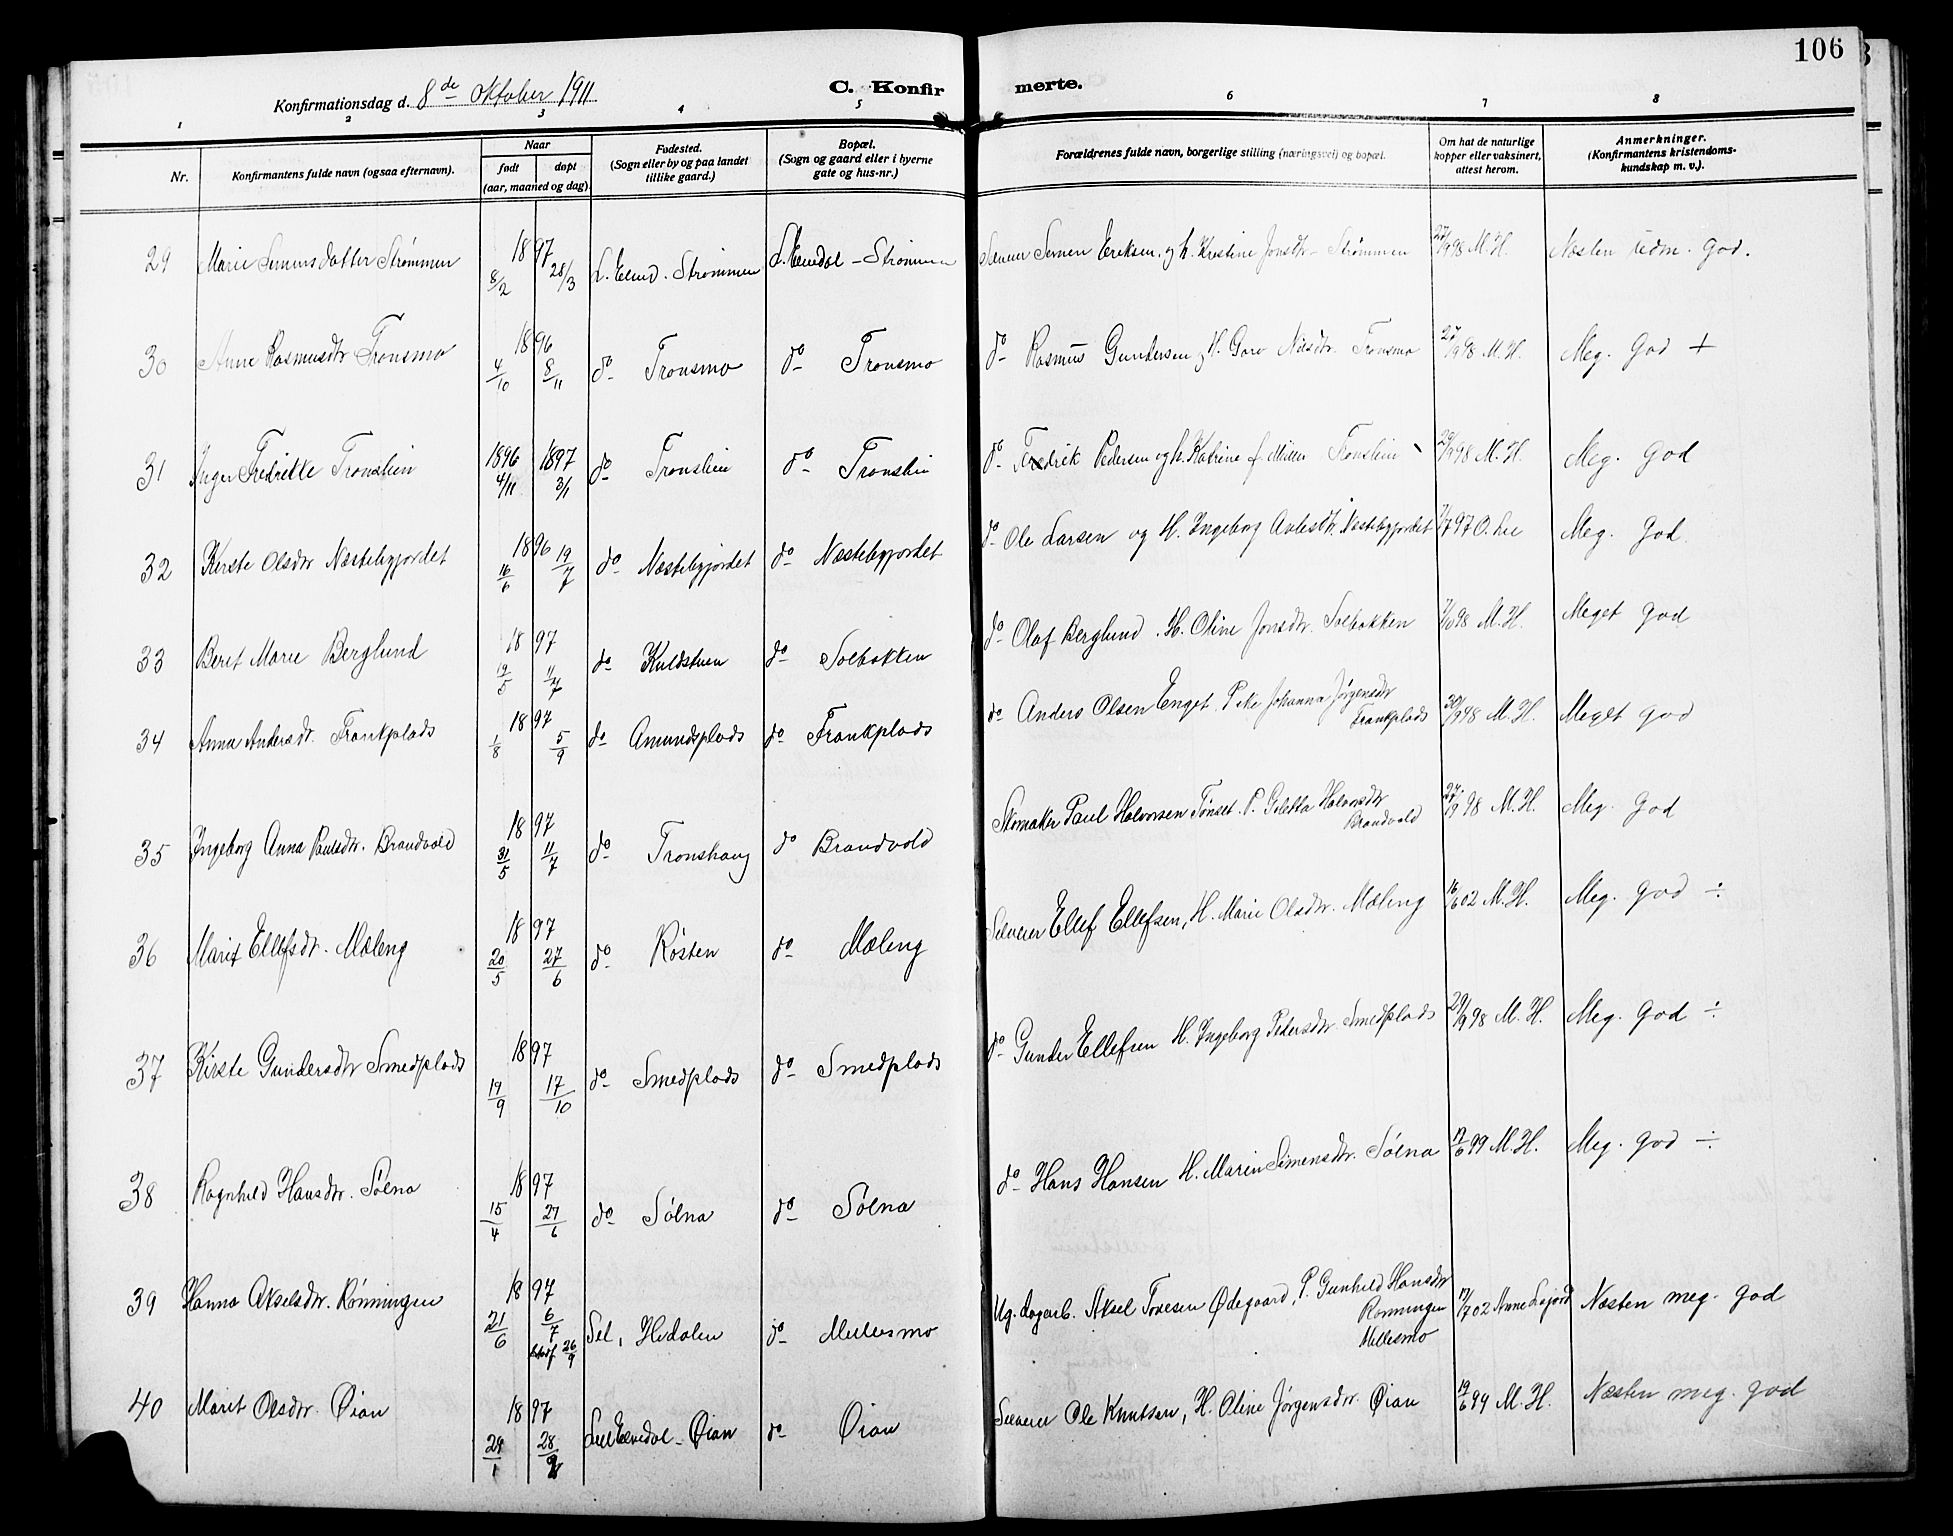 106
Konfirmationsdag d. 8de Oktober 1911
C. Konfirmerte.
1 2 3 4 5 6 7 8
Nr. Konfirmantens fulde navn (ogsaa efternavn). Naar født døpt (aar, maaned og dag) Fødested. (Sogn eller by og paa landet tillike gaard.) Bopæl. (Sogn og gaard eller i byerne gate og hus-nr.) Forældrenes fulde navn, borgerlige stilling (næringsvei) og bopæl. Om hat de naturlige kopper eller vaksinert, attest herom. Anmerkninger. (Konfirmantens kristendomskundskap m. v.).
29 Marie Simensdatter Strømmen 1897 8/2 28/3 L. Elvd. Strømmen L. Elvedal - Strømmen Simen Eriksen og h. Kristine Jonsdtr. Strømmen 27/9 98 M. H. Næsten udm. god.
30 Anne Rasmusdtr Tronsmo 1896 4/10 8/11 do Tronsmo do Tronsmo do Rasmus Gundersen, H. Goro Nilsdtr. Tronsmo 27/9 98 M. H. Meg. god +
31 Inger Fredrikke Tronslien 1896 4/11 1897 3/1 do Tronslien do Tronslien do Fredrik Pedersen og h. Katrine f. Tronslien 29/9 98 M. H. Meg. god
32 Kirste Olsdtr Næstebyjordet 1896 16/6 19/7 do Næstebyjordet do Næstebyjordet do Ole Larsen og H. Ingeborg Næstebyjordet 7/7 97 O. Lie Meg. god
33 Beret Marie Berglund 1897 19/5 11/7 do Kuldstuen do Solbakken do Olaf Berglund. H. Oline Jonsdtr. Solbakken M. H. Meget god
34 Anna Andersdtr. Frankplads 1897 1/8 5/9 do Amundsplads do Frankplads do Anders Olsen Enget. Pike Johanna Jørgensdtr Frankplads 30/9 98 M. H. Meget god
35 Ingeborg Anna Paulsdtr. Brandvold 1897 31/5 11/7 do Tronshaug do Brandvold Skomaker Paul Halvorsen Tønset. P. Halvorsdtr Brandvold 98 M. H. Meg. god
36 Marit Ellefsdtr. Mæleng 1897 20/5 27/6 do Røsten do Mæleng Selveier Ellef Ellefsen, H. Marie Olsdtr. Mæleng 16/6 02 M. H. Meg. god ÷
37 Kirste Gundersdtr Smedplads 1897 19/9 17/10 do Smedplads do Smedplads do Gunder Ellefsen H. Ingeborg Pedersdtr Smedplads 29/9 98 M. H. Meg. god ÷
38 Ragnhild Hansdtr. Sølna 1897 15/4 27/6 do Sølna do Sølna do Hans Hansen H. Marie Simensdtr. Sølna 17/6 99 M. H. Meg. god ÷
39 Hanna Akselsdtr. Rønningen 1897 21/6 6/7 26/9 Sel, Hedalen do Millesmo Ug. dagarb. Aksel Tovesen Ødegaard, P. Gunhild Hansdtr Rønningen Millesmo 17/7 02 Anne Næsten meg. god
40 Marit Olsdtr. Øian 1897 24/1 28/2 Lil Elvedal - Øian do Øian Selveier Ole Knutsen, H. Oline Jørgensdtr. Øian 19/6 99 M. H. Næsten meg. god